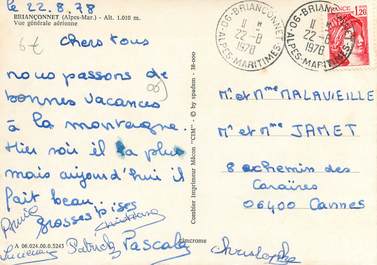 le 22.8.78
BRIANÇONNET (Alpes-Mar.) - Alt. 1.010 m.
Vue générale aérienne
chers tous
nous passons de
bonnes vacances
à la montagne.
Hier soir il a plus
mais aujourd'hui il
fait beau.
Grosses bises
Annie
Patrick Pascale
Christophe
A 06.024.00.0.3243
Combier Imprimeur Mâcon "CIM" - © by spadem - 38-000
BRIANÇONNET-90
11 H
22-8
1978
ALPES-MARITIMES
BRIANÇONNET-90
11 H
22-8
1978
ALPES-MARITIMES
1,20
Mr et Mme MALAVIEILLE
Mr et Mme JAMET
8 chemin des
Caraïres
06400 Cannes